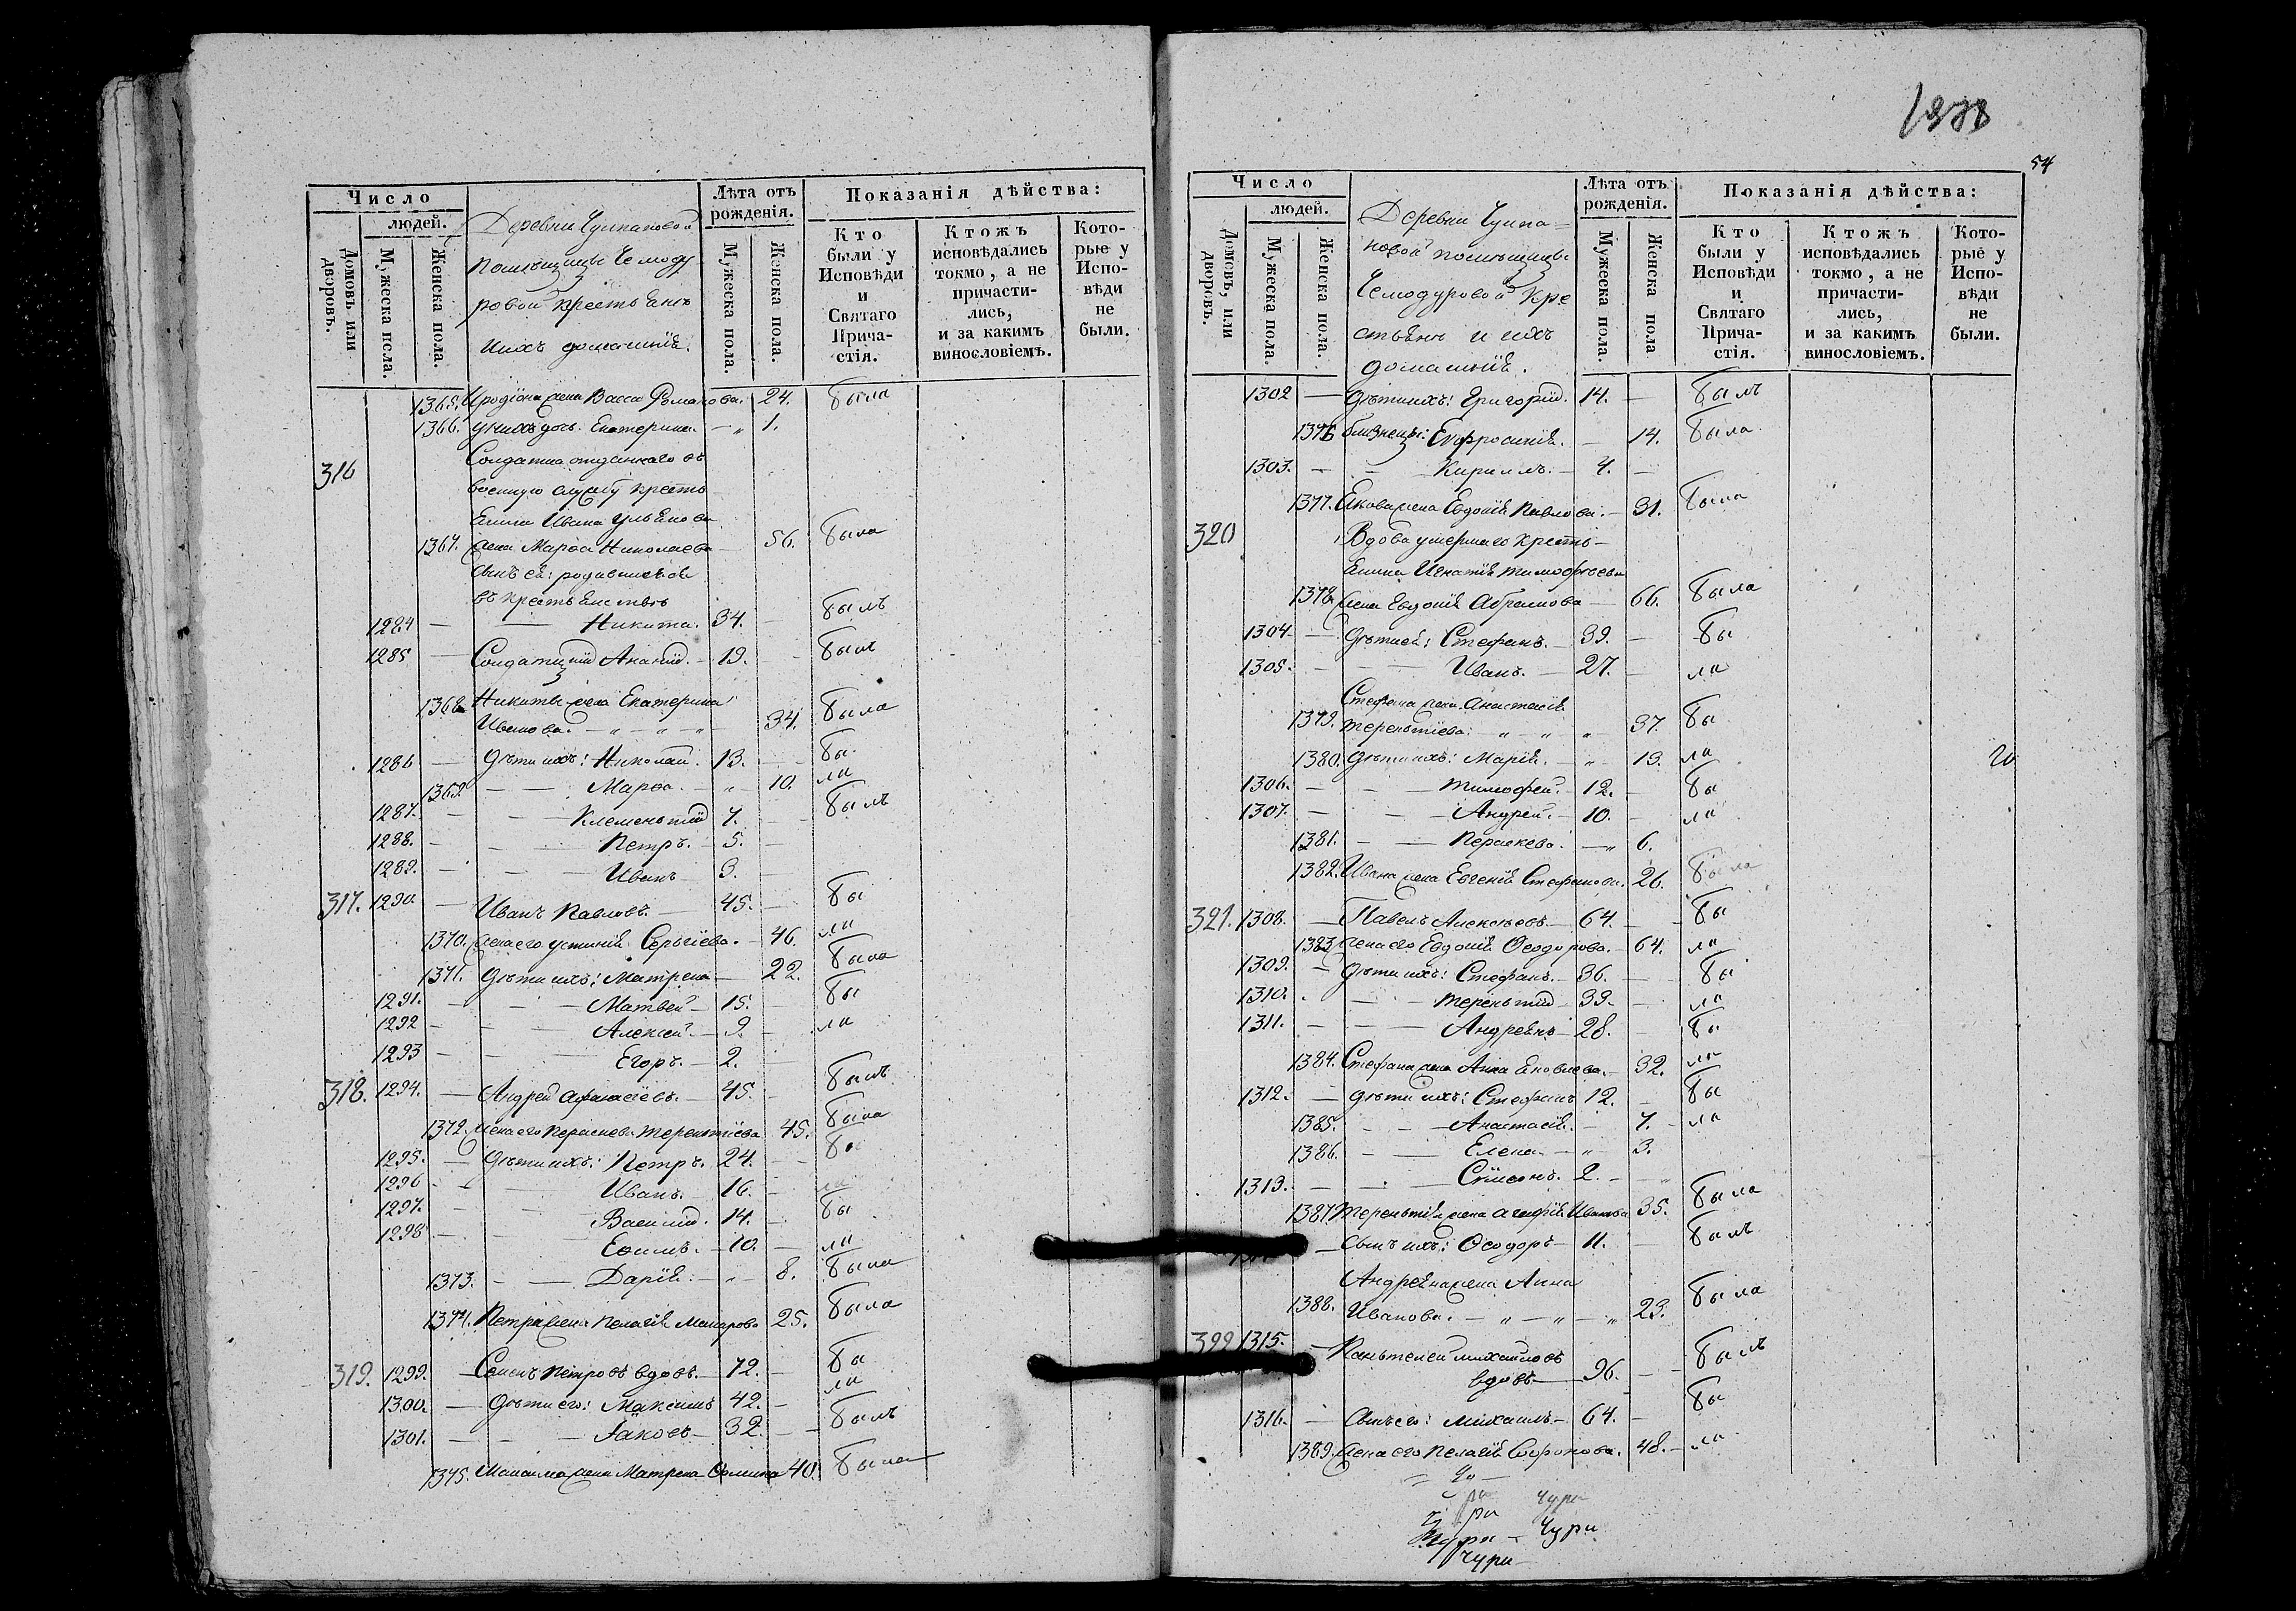 Число
людей.
Домовъ или дворовъ.
Мужеска пола.
Женска пола.
Деревни Чулпановой
помѣщицы Чемоду
ровой крестьянъ
ихъ домашнiя.
Лѣта отъ рожденія.
Мужеска пола.
Женска пола.
Показанія дѣйства:
Кто были у Исповѣди и Святаго Прича-стія.
Ктожъ исповѣдались токмо, а не причасти-лись, и за какимъ винословіемъ.
Кото-рые у Испо-вѣди не были.
1365. Иродіона жена Васса Романова. 24. была
1366. у нихъ дочь Екатерина. — „ 1.
316 Солдатка отданнаго въ
военную службу кресть
янина Ивана Ульянова
1367. жена Марѳа Николаева — 56. была
сынъ ея: родившійся
въ крестьянствѣ
1284 — — Никита. 34. — былъ
1285 — Солдатскій Ананій. — 19. — былъ
1368. Никиты жена Екатерина
Иванова. — „ — „ — „ — 34. была
1286 — Дѣти ихъ: Николай. 13. — бы
1369. — — Марѳа. — „ — 10. ли
1287. — — Клементій 7. — былъ
1288. — — Петръ. — 5. —
1289. — — Иванъ 3. —
317. 1290. — Иванъ Павловъ. — 45. — бы
1370. жена его Устинія Сергіева. — 46. ли
1371. Дѣти ихъ: Матрена — 22. была
1291. — — Матвей — 15. — бы
1292 — — Алексей. — 9. — ли
1293 — — Егоръ. — 2. —
318. 1294. — Андрей Афанасіевъ. — 45. — былъ
1372. жена его Параскева Терентіева 45. была
1295. — Дѣти ихъ: Петръ. 24. — бы
1296 — — Иванъ. — 16. — ли
1297. — — Василій. 14. — бы
1298 — — Еѳимъ. — 10. — ли
1373. — — Дарія: — „ — 8. была
1374. Петра жена Пелагія Макарова 25. была
319. 1299. — Семенъ Петровъ вдовъ. — 72. — бы
1300. — Дѣти его: Максимъ 42. — ли
1301. — — Іаковъ — 32. — былъ
1375. Максима жена Матрена 40. была
1838
54
Число
людей.
Домовъ, или дворовъ.
Мужеска пола.
Женска пола.
Деревни Чулпа-
новой помѣщицы
Чемодуровой кре
стьянъ и ихъ
домашнія.
Лѣта отъ рожденія.
Мужеска пола.
Женска пола
Показанія дѣйства:
Кто были у Исповѣди и Святаго Прича-стія.
Ктожъ исповѣдались токмо, а не причасти-лись, и за какимъ винословіемъ.
Кото-рые у Испо-вѣди не были.
1302 — Дѣти ихъ: Григорій. 14. — былъ
1376 близнецы: Евфросинія. — 14. была
1303. — — Кириллъ. — 4. —
1377. Якова жена Евдокія Павлова. — 31. была
320 Вдова умершаго кресть-
янина Игнатія Тимофѣева
1378. жена Евдокія Абрамова — 66. была
1304 — Дѣти ея: Стефанъ. — 39. — бы
1305. — — Иванъ. — 27. — ли
Стефана жена Анастасія
1379. Терентіева. — „ — „ „ 37. бы
1380. Дѣти ихъ: Марія. — „ — 13. ли
20
1306. — — Тимофей. — 12. — бы
1307. — — Андрей. — 10. — ли
1381. — — Параскева. — „ 6.
1382. Ивана жена Евгенія Стефанова. 26. была
321. 1308. — Павелъ Алексѣевъ. — 64. — бы
1383. жена его Евдокія Ѳеодорова. — 64. ли
1309. — Дѣти ихъ: Стефанъ. — 36. — бы
1310. — — Терентій — 33. — ли
1311. — — Андреянъ — 28. — бы
1384. Стефана жена Анна Яковлева. — 32. ли
1312. — Дѣти ихъ: Стефанъ 12. — бы
1385. — — Анастасія. — 7. — ли
1386. — — Елена. — „ — 3.
1313. — — Сімеонъ. 2. — „
1387. Терентія жена Агафія Иванова 35. была
— Сынъ ихъ: Ѳеодоръ — 11. — былъ
Андреяна жена Анна
1388. Иванова. — „ — „ — „ 23. была
322 1315. — Пантелей Михайловъ
вдовъ — 96. — былъ
1316. — Сынъ его: Михаилъ. — 64. — бы
1389. жена его Пелагія Софронова. 48. — ли
ри Чури
ри
Чури — Чури
Чури —